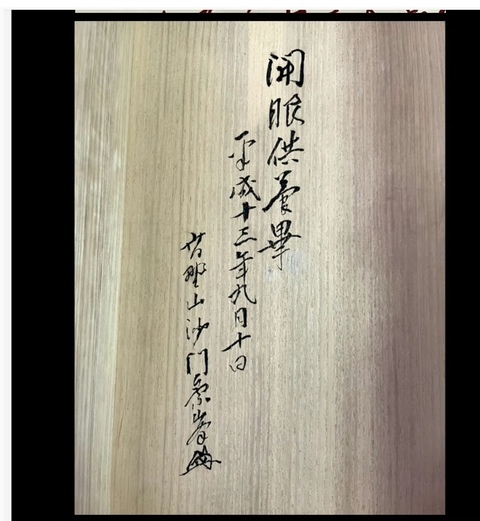 開眼供養畢
平成十三年九月十日
沙門